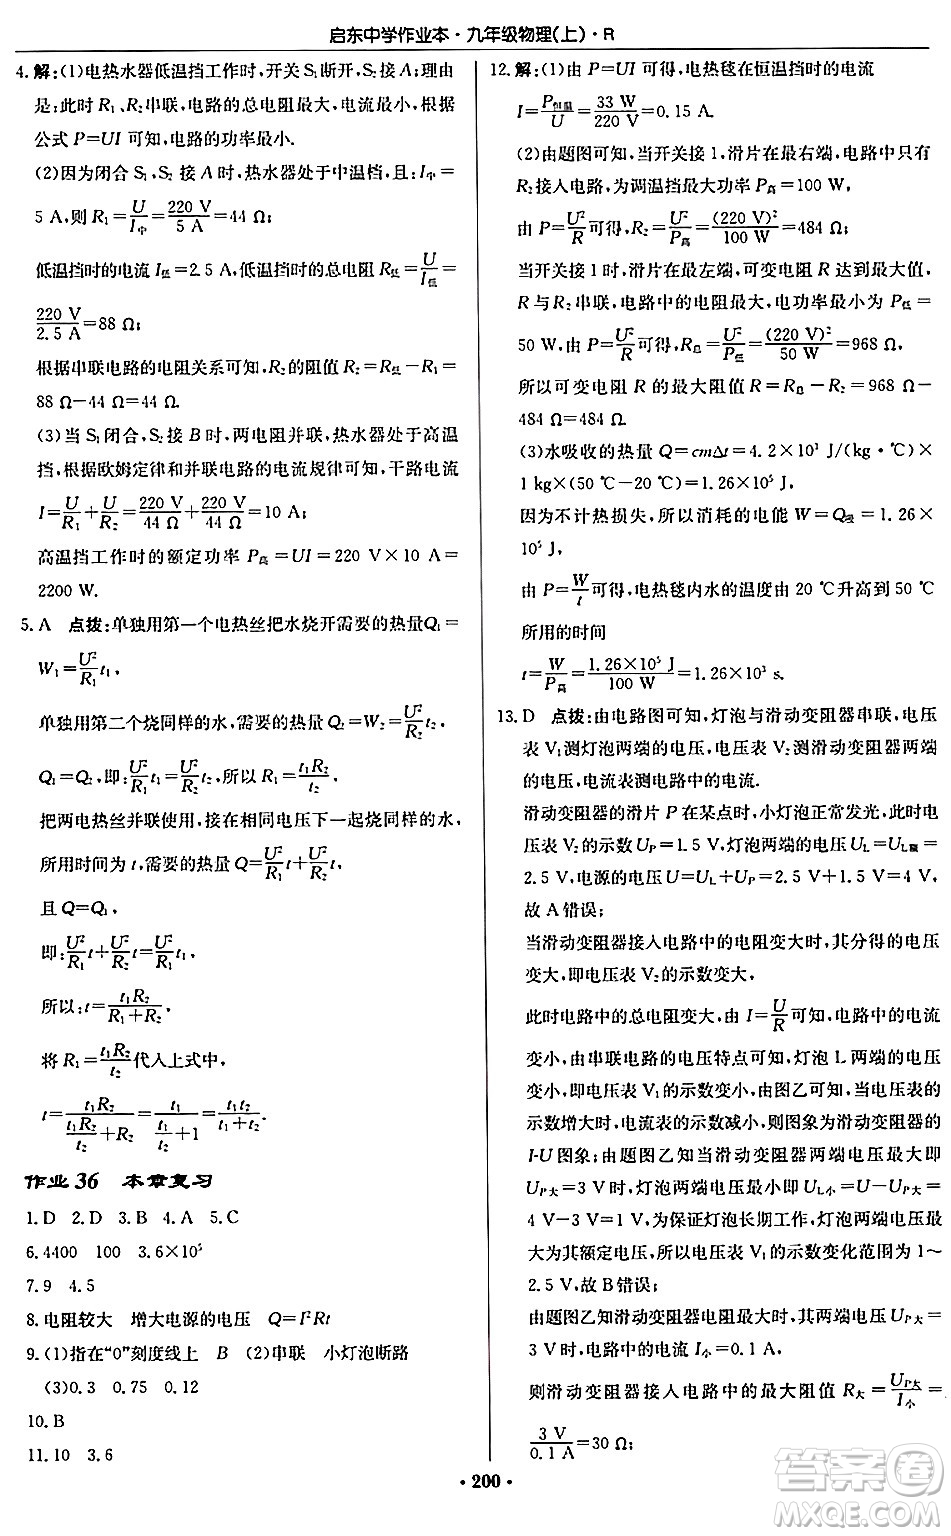 启东中学作业本·九年级物理(上)·R
4.解:(1)电热水器低温挡工作时,开关 S₁断开,S₂接 A;理由
是:此时 R₁、R₂串联,电路的总电阻最大,电流最小,根据
公式 P=UI 可知,电路的功率最小.
(2)因为闭合 S₁,S₂ 接 A 时,热水器处于中温档,则 I中=
5 A,则 R₁=U/I中=220 V/5 A=44 Ω;
低温挡时的电流 I低=2.5 A,低温挡时的总电阻 R低=U/I低=
220 V/2.5 A=88 Ω;
根据串联电路的电阻关系可知,R₂的阻值 R低-R₁=
88 Ω-44 Ω=44 Ω.
(3)当 S₁闭合,S₂接 B 时,两电阻并联,热水器处于高温
挡,根据欧姆定律和并联电路的电流规律可知,干路电流
I=U/R₁+U/R₂=220 V/44 Ω+220 V/44 Ω=10 A;
高温挡工作时的额定功率 P高=UI=220 V×10 A=
2200 W.
5.A 点拨:单独用第一个电热丝把水烧开需要的热量Q₁=
W₁=U²/R₁t₁,
单独用第二个烧同样的水,需要的热量 Q₂=W₂=U²/R₂t₂,
Q₁=Q₂,即:U²/R₁t₁=U²/R₂t₂,所以 R₁=t₁R₂/t₂.
把两电热丝并联使用,接在相同电压下一起烧同样的水,
所用时间为 t,需要的热量 Q=U²/R₁t+U²/R₂t,
且 Q=Q₁,
即:U²/R₁t+U²/R₂t=U²/R₁t₁,
所以:t=t₁R₂/(R₁+R₂),
将 R₁=t₁R₂/t₂代入上式中,
t=t₁R₂/(t₁R₂/t₂+R₂)=t₁/(t₁/t₂+1)=t₁t₂/(t₁+t₂).
作业 36 本章复习
1.D 2.D 3.B 4.A 5.C
6.4400 100 3.6×10⁵
7.9 4.5
8.电阻较大 增大电源的电压 Q=I²Rt
9.(1)指在“0”刻度线上 B (2)串联 小灯泡断路
(3)0.3 0.75 0.12
10.B
11.10 3.6
12.解:(1)由 P=UI 可得,电热毯在恒温挡时的电流
I=P恒温/U=33 W/220 V=0.15 A.
(2)由题图可知,当开关接 1,滑片在最右端,电路中只有
R₂接入电路,为调温挡最大功率 P高=100 W,
由 P=U²/R可得,R₂=U²/P高=(220 V)²/100 W=484 Ω;
当开关接 1 时,滑片在最左端,可变电阻 R 达到最大值,
R 与 R₂串联,电路中的电阻最大,电功率最小为 P低=
50 W,由 P=U²/R可得,R总=U²/P低=(220 V)²/50 W=968 Ω,
所以可变电阻 R 的最大阻值 R=R总-R₂=968 Ω-
484 Ω=484 Ω;
(3)水吸收的热量 Q=cmΔt=4.2×10³ J/(kg·℃)×
1 kg×(50 ℃-20 ℃)=1.26×10⁵ J,
因为不计热损失,所以消耗的电能 W=Q吸=1.26×
10⁵ J,
由 P=W/t可得,电热毯内水的温度由 20 ℃升高到 50 ℃
所用的时间
t=W/P高=1.26×10⁵ J/100 W=1.26×10³ s.
13.D 点拨:由电路图可知,灯泡与滑动变阻器串联,电压
表 V₁测灯泡两端的电压,电压表 V₂测滑动变阻器两端
的电压,电流表测电路中的电流.
滑动变阻器的滑片 P 在某点时,小灯泡正常发光,此时电
压表 V₂的示数 UP=1.5 V,灯泡两端的电压 UL=UL额=
2.5 V,电源的电压 U=UL+UP=2.5 V+1.5 V=4 V,
故 A 错误;
当滑动变阻器接入电路中的电阻变大时,其分得的电压
变大,即电压表 V₂的示数变大,
此时电路中的总电阻变大,由 I=U/R可知,电路中的电流
变小,由串联电路的电压特点可知,灯泡 L 两端的电压
变小,即电压表 V₁的示数变小,由图乙可知,电压表的示
数增大时,电流表的示数减小,则图象为滑动变阻器的
I-U 图象;由题图乙知,滑动变阻器两端的电压最大即
UP大=3 V 时,灯泡两端的电压最小即 UL小=U-UP大=
4 V-3 V=1 V,为保证灯泡长期工作,灯泡两端电压
最大为其额定电压,则电压表 V₁的示数变化范围为 1~
2.5 V,故 B 错误;
由题图乙知滑动变阻器电阻最大时,其两端电压 UP大=
3 V 时电路中的电流 I小=0.1 A,
则滑动变阻器接入电路中的最大阻值 R大=UP大/I小=
3 V/0.1 A=30 Ω;
·200·
答案圈
MXQE.COM